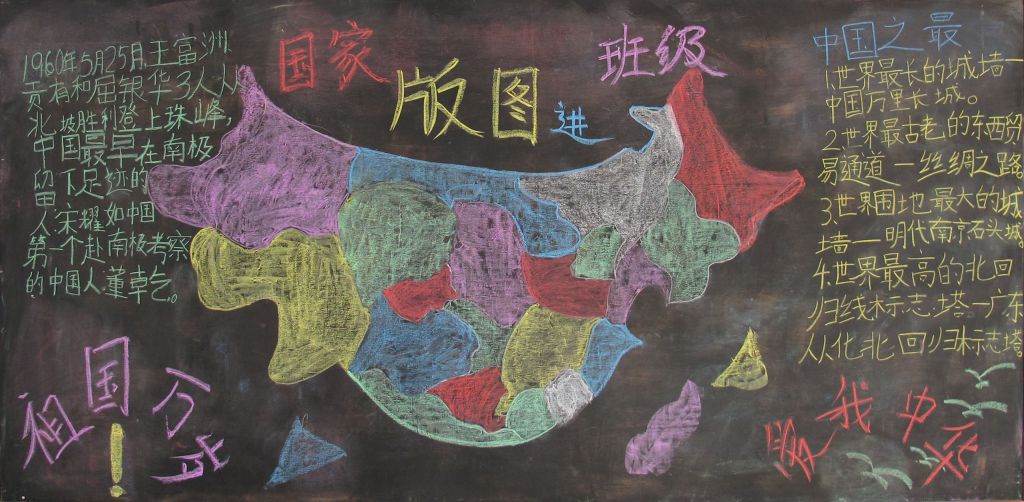 国家
版图
进
班级
1960年5月25月,王富洲
贡布和屈银华3人从
北坡胜利登上珠峰,
中国最早在南极
留下足迹的
人宋耀如中国
第一个赴南极考察
的中国人董草乞。
中国之最
1.世界最长的城墙一
中国万里长城。
2.世界最古老的东西贸
易通道一丝绸之路。
3.世界围地最大的城
墙一明代南京石头城。
4.世界最高的北回
归线标志塔一广东
从化北回归标志塔。
祖国
!
我中